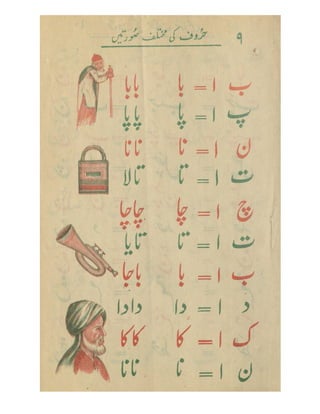 ۹ حروف کی مختلف صورتیں
ب ا = با بابا
پ ا = پا پاپا
ن ا = نا نانا
ت ا = تا تالا
چ ا = چا چاچا
ت ا = تا تایا
ب ا = با باجا
د ا = دا دادا
ک ا = کا کاکا
ن ا = نا نانا